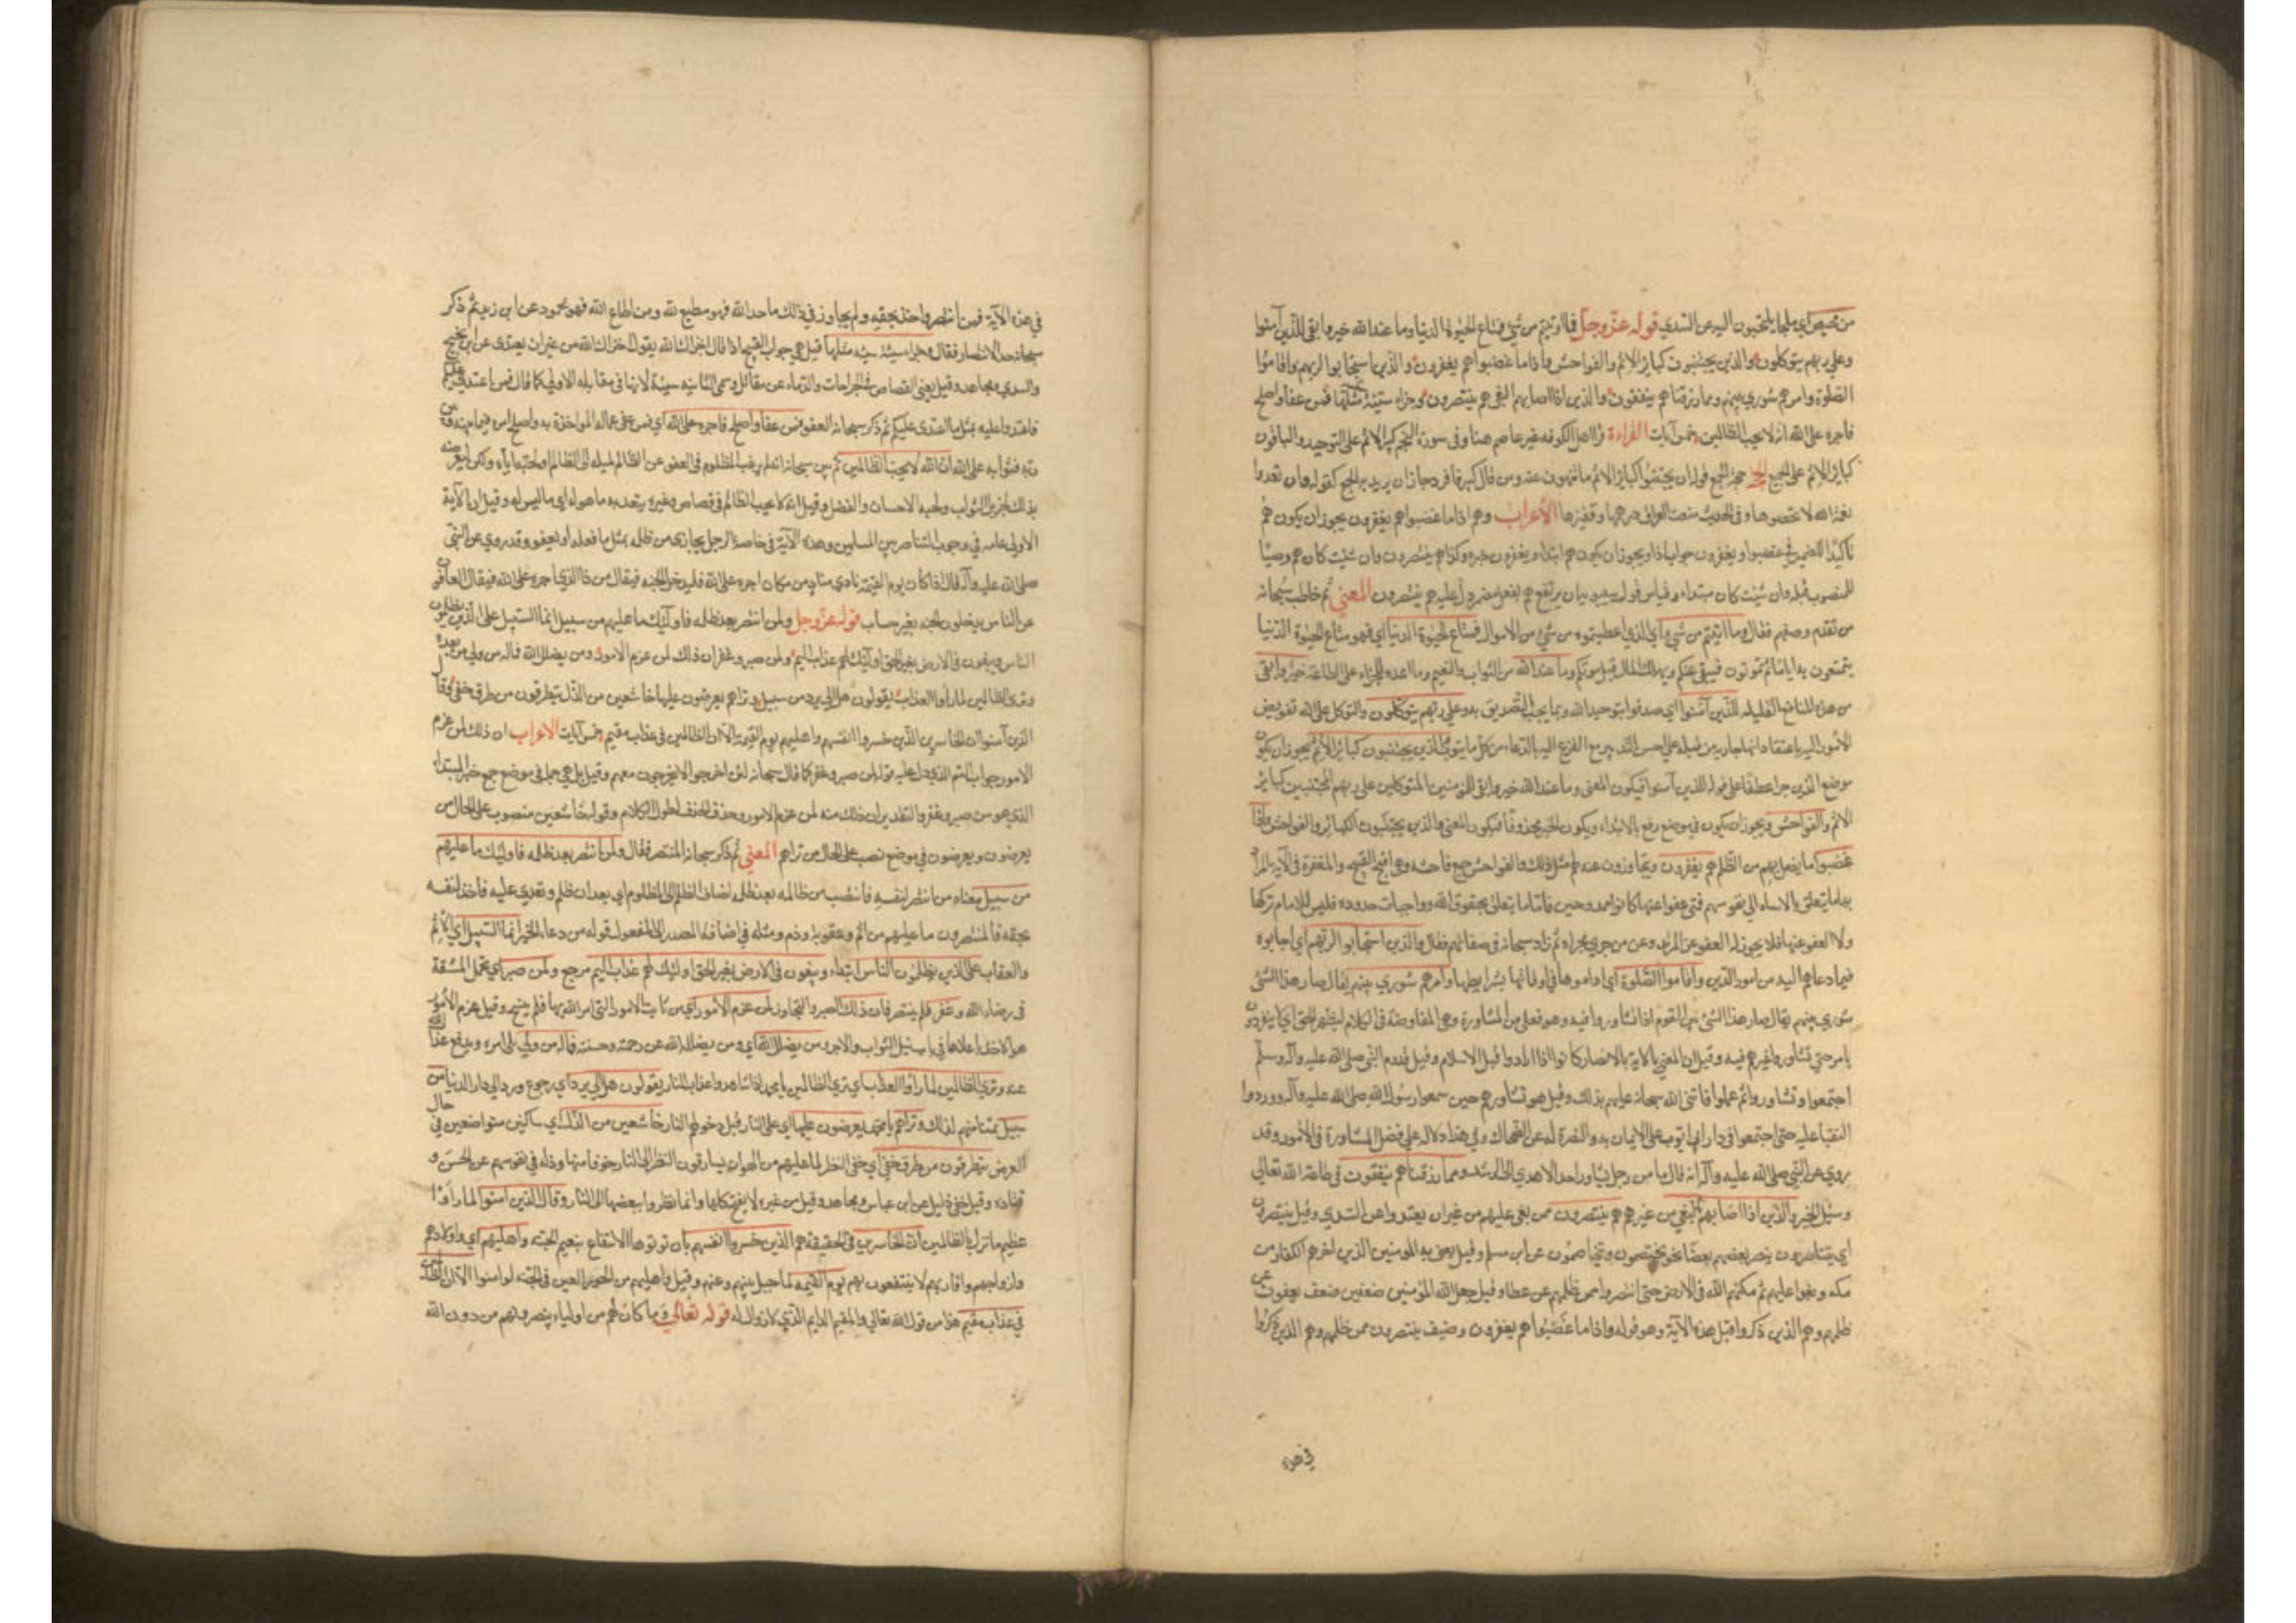 من محيص اي ملجا يلتجئون اليه عن السدي قوله عز وجل فما اوتيتم من شي فمتاع الحيوة الدنيا وما عند الله خير وابقى للذين آمنوا
وعلى ربهم يتوكلون والذين يجتنبون كبائر الاثم والفواحش واذا ما غضبوا هم يغفرون والذين استجابوا لربهم واقاموا
الصلوة وامرهم شوري بينهم ومما رزقناهم ينفقون والذين اذا اصابهم البغي هم ينتصرون وجزاء سيئة سيئة مثلها فمن عفا واصلح
فاجره على الله انه لا يحب الظالمين خمس آيات القراءة قرا اهل الكوفه غير عاصم هنا وفي سورة النجم كبير الاثم على التوحيد والباقون
كبائر الاثم على الجمع الحجة حجة الجمع قوله ان يجتنبوا كبائر الاثم ما تنهون عنه ومن قال كبير فافرد جاز ان يريد به الجمع كقوله وان تعدوا
نعمة الله لا تحصوها وفي الحديث منعت العراق درهمها وقفيزها الأعراب وهم اذا ما غضبوا هم يغفرون يجوز ان يكون هم
تأكيدا للضمير في غضبوا ويغفرون جواب اذا ويجوز ان يكون هم ابتداء ويغفرون خبره وكذا هم ينتصرون وان شئت كان هم وصفا
للمنصوب قبله وان شئت كان مبتداء وقياس قول سيبويه ان يرتفع هم بفعل مضمر دل عليه هم ينتصرون المعني ثم خاطب سبحانه
من تقدم وصفهم فقال وما اتيتم من شيء اي الذي اعطيتموه من شي من الاموال فمتاع الحيوة الدنيا اي فهو متاع الحيوة الدنيا
يتمتعون به اياما ثم تموتون فيبقى عنكم ويهلك المال قبل موتكم وما عند الله من الثواب والنعيم وما اعده للجزاء على الطاعة خير وابقى
من هذه المنافع القليلة للذين آمنوا اي صدقوا بتوحيد الله وبما يجب التصديق به وعلى ربهم يتوكلون والتوكل على الله تفويض
الامور اليه باعتقاد انها جاريه من قبله على احسن التدبير مع الفزع اليه بالدعاء من كل ما ينوب والذين يجتنبون كبائر الاثم يجوز ان يكون
موضع الذين جرا عطفا على قوله للذين آمنوا فيكون المعنى وما عند الله خير وابقى للمؤمنين المتوكلين على ربهم المجتنبين كبائر
الاثم والفواحش ويجوز ان يكون في موضع رفع بالابتداء ويكون الخبر محذوفا فيكون المعنى والذين يجتنبون الكبائر والفواحش واذا
غضبوا مما يفعل بهم من الظلم هم يغفرون ويتجاوزون عنه لهم مثل ذلك والفواحش جمع فاحشه وهي اقبح القبيح والمغفرة في الآية المراد
بها ما يتعلق بالاساءه الى نفوسهم فمتى عفوا عنها كانوا ممدوحين فاما ما يتعلق بحقوق الله وواجبات حدوده فليس للامام تركها
ولا العفو عنها فلا يجوز له العفو عن المرتد وعن من جري مجراه ثم زاد سبحانه في صفاتهم فقال والذين استجابوا لربهم اي اجابوه
فيما دعاهم اليه من امور الدين واقاموا الصلوة اي اداموها في اوقاتها بشرايطها وامرهم شوري بينهم يقال صار هذا الشئ
شوري بينهم يقال صار هذا الشئ بين القوم اذا تشاوروا فيه وهو فعلى من المشاورة وهي المفاوضة في الكلام ليظهر الحق اي لا ينفردون
بامر حتي تشاوروا غيرهم فيه وقيل ان المعني بالآية الانصار كانوا اذا ارادوا قبل الاسلام وقبل قدوم النبي صلى الله عليه وآله وسلم
اجتمعوا وتشاوروا ثم عملوا فاثنى الله سبحانه عليهم بذلك وقيل هو تشاورهم حين سمعوا رسول الله صلى الله عليه وآله وورود
النقبا عليه حتى اجتمعوا في دار ابي ايوب على الايمان به والنصرة له عن الضحاك وفي هذا دلاله على فضل المشاورة في الامور وقد
روي عن النبي صلى الله عليه وآله انه قال ما من رجل يشاور احدا الا هدي الى الرشد ومما رزقناهم ينفقون في طاعة الله تعالى
وسبل الخير والذين اذا اصابهم البغي من غيرهم هم ينتصرون ممن بغى عليهم من غير ان يعتدوا عن السدي وقيل ينتصرون
اي يتناصرون ينصر بعضهم بعضا نحو يختصمون ويتخاصمون عن ابي مسلم وقيل يعني به المؤمنين الذين اخرجهم الكفار من
مكه وبغوا عليهم ثم مكنهم الله في الارض حتى انتصروا ممن ظلمهم عن عطا وقيل جعل الله المؤمنين صنفين صنف يعفون عن
ظلمهم وهم الذين ذكروا قبل هذه الآية وهو قوله واذا ما غضبوا هم يغفرون وصنف ينتصرون ممن ظلمهم وهم الذين ذكروا
في هذه
في هذه الآية فمن انتصر واخذ بحقه ولم يجاوز في ذلك ما حد الله فهو مطيع لله ومن اطاع الله فهو محمود عن ابن زيد ثم ذكر
سبحانه حد الانتصار فقال وجزاء سيئة سيئة مثلها قيل هو جواب القبيح اذا قال اخزاك الله يقول اخزاك الله من غير ان يعتدى عن ابن نجيح
والسدي ومجاهد وقيل يعني القصاص في الجراحات والدماء عن مقاتل وسمى الثانيه سيئة لانها في مقابله الاولى كما قال فمن اعتدى عليكم
فاعتدوا عليه بمثل ما اعتدى عليكم ثم ذكر سبحانه العفو فمن عفا واصلح فاجره على الله اي فمن عفى عما له المواخذة به واصلح امره فيما بينه وبين
ربه فثوابه على الله ان الله لا يحب الظالمين ثم بين سبحانه انه لم يرغب المظلوم في العفو عن الظالم لميله الى الظالم او لحبه اياه ولكن ليعرضه
بذلك لجزيل الثواب ولحبه الاحسان والفضل وقيل انه لا يحب الظالم في قصاص وغيره بتعديه ما هو له الى ما ليس له وقيل ان الآية
الاولى عامه في وجوب التناصر بين المسلمين وهذه الآية في خاصة الرجل يجازي من ظلمه بمثل ما فعله او يعفو وقد روي عن النبي
صلى الله عليه وآله قال اذا كان يوم القيمة نادى مناد من كان اجره على الله فليدخل الجنه فيقال من ذا الذي اجره على الله فيقال العافون
عن الناس يدخلون الجنه بغير حساب قوله عز وجل ولمن انتصر بعد ظلمه فاولئك ما عليهم من سبيل انما السبيل على الذين يظلمون
الناس ويبغون في الارض بغير الحق اولئك لهم عذاب اليم ولمن صبر وغفر ان ذلك لمن عزم الامور ومن يضلل الله فماله من ولي من بعده
وترى الظالمين لما رأوا العذاب يقولون هل الى مرد من سبيل وتراهم يعرضون عليها خاشعين من الذل ينظرون من طرف خفى وقال
الذين آمنوا ان الخاسرين الذين خسروا انفسهم واهليهم يوم القيمة الا ان الظالمين في عذاب مقيم خمس آيات الاعراب ان ذلك لمن عزم
الامور جواب القسم الذي دل عليه قوله لمن صبر وغفر كما قال سبحانه لئن اخرجوا لا يخرجون معهم وقيل بل هي جملة في موضع خبر المبتداء
الذي هو من صبر وغفر والتقدير ان ذلك منه لمن عزم الامور وحذف الحذف لطول الكلام وقوله خاشعين منصوب على الحال من
يعرضون ويعرضون في موضع نصب على الحال من تراهم المعني ثم ذكر سبحانه المنتصر فقال ولمن انتصر بعد ظلمه فاولئك ما عليهم
من سبيل معناه من انتصر لنفسه فانتصف من ظالمه بعد ظلمه اضاف الظلم الى المظلوم اي بعد ان ظلم وتعدي عليه فاخذ لنفسه
بحقه فالمنتصرون ما عليهم من اثم وعقوبة وذم ومثله في اضافة المصدر الى المفعول قوله من دعاء الخير انما السبيل اي الاثم
والعقاب على الذين يظلمون الناس ابتداء ويبغون في الارض بغير الحق اولئك لهم عذاب اليم مرجع ولمن صبر اي تحمل المشقة
في رضاء الله وغفر فلم ينتصر فان ذلك الصبر والتجاوز لمن عزم الامور اي من ثابت الامور التي امر الله بها فلم ينسخ وقيل عزم الامور
هو الاخذ باعلاها في باب نيل الثواب والاجر ومن يضلل الله اي ومن يضلله الله عن رحمته وجنته فماله من ولي يلي امره ويدفع عذاب الله
عنه وترى الظالمين لما رأوا العذاب اي تري الظالمين يا محمد اذا شاهدوا عذاب النار يقولون هل الى مرد اي رجوع ورد الى دار الدنيا من
سبيل تمنيا منهم لذلك وتراهم يا محمد يعرضون عليها اي على النار قبل دخولهم النار خاشعين من الذل اي ساكنين متواضعين في حال
العرض ينظرون من طرف خفي اي خفي النظر لما عليهم من الهوان يسارقون النظر الى النار خوفا منها وذله في نفوسهم عن الحسن و
قتاده وقيل خفي ذليل عن ابن عباس ومجاهد وقيل من عين لا يفتح كلها وانما نظروا ببعضها الى النار وقال الذين امنوا لما رأوا
عظيم ما نزل بالظالمين ان الخاسرين في الحقيقة هم الذين خسروا انفسهم بان فوتوها الانتفاع بنعيم الجنه واهليهم اي واولادهم
وازواجهم واقاربهم لا ينتفعون بهم يوم القيمه لما حيل بينهم وعنهم وقيل واهليهم من الحور العين في الجنه لو امنوا الا ان الظالمين
في عذاب مقيم هذا من قول الله تعالى والمقيم الدايم الذي لا زوال له قوله تعالى وما كان لهم من اولياء ينصرونهم من دون الله